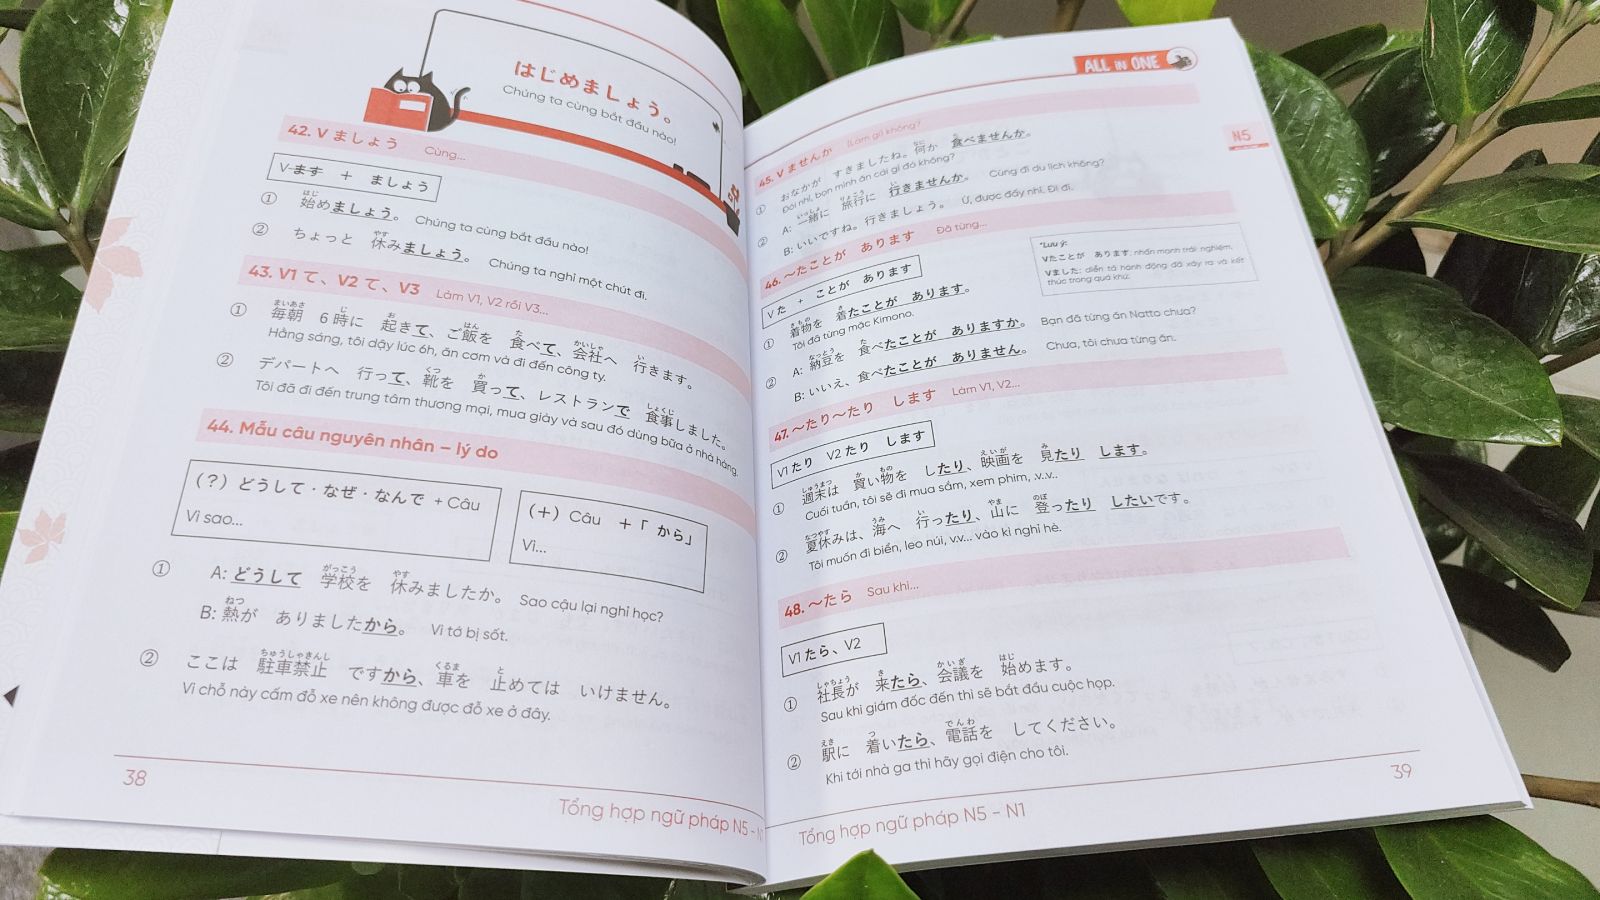 はじめましょう。
Chúng ta cùng bắt đầu nào!
42. V ましょう Cùng...
V-ます + ましょう
① 始めましょう。 Chúng ta cùng bắt đầu nào!
② ちょっと 休みましょう。 Chúng ta nghỉ một chút đi.
43. V1 て、V2 て、V3 Làm V1, V2 rồi V3...
① 毎朝 6時に 起きて、ご飯を 食べて、会社へ 行きます。
Hằng sáng, tôi dậy lúc 6h, ăn cơm và đi đến công ty.
② デパートへ 行って、靴を 買って、レストランで 食事しました。
Tôi đã đi đến trung tâm thương mại, mua giày và sau đó dùng bữa ở nhà hàng.
44. Mẫu câu nguyên nhân – lý do
(？) どうして・なぜ・なんで + Câu
Vì sao...
(＋) Câu ＋「 から」
Vì...
① A: どうして 学校を 休みましたか。 Sao cậu lại nghỉ học?
B: 熱が ありましたから。 Vì tớ bị sốt.
② ここは 駐車禁止 ですから、車を 止めては いけません。
Vì chỗ này cấm đỗ xe nên không được đỗ xe ở đây.
38
Tổng hợp ngữ pháp N5 - N1
ALL IN ONE
N5
45. V ませんか (Làm gì) không?
① おなかが すきましたね。何か 食べませんか。
Đói nhỉ, bọn mình ăn cái gì đó không?
② A: 一緒に 旅行に 行きませんか。 Cùng đi du lịch không?
B: いいですね。行きましょう。 Ừ, được đấy nhỉ. Đi đi.
46. ～たことが あります Đã từng...
Vた + ことが あります
*Lưu ý:
Vたことが あります: nhấn mạnh trải nghiệm.
Vました: diễn tả hành động đã xảy ra và kết
thúc trong quá khứ.
① 着物を 着たことが あります。
Tôi đã từng mặc Kimono.
② A: 納豆を 食べたことが ありますか。 Bạn đã từng ăn Natto chưa?
B: いいえ、食べたことが ありません。 Chưa, tôi chưa từng ăn.
47. ～たり～たり します Làm V1, V2...
V1たり V2たり します
① 週末は 買い物を したり、映画を 見たり します。
Cuối tuần, tôi sẽ đi mua sắm, xem phim, .v.v..
② 夏休みは、海へ 行ったり、山に 登ったり したいです。
Tôi muốn đi biển, leo núi, v.v... vào kì nghỉ hè.
48. ～たら Sau khi...
V1たら、V2
① 社長が 来たら、会議を 始めます。
Sau khi giám đốc đến thì sẽ bắt đầu cuộc họp.
② 駅に 着いたら、電話を してください。
Khi tới nhà ga thì hãy gọi điện cho tôi.
39
Tổng hợp ngữ pháp N5 - N1